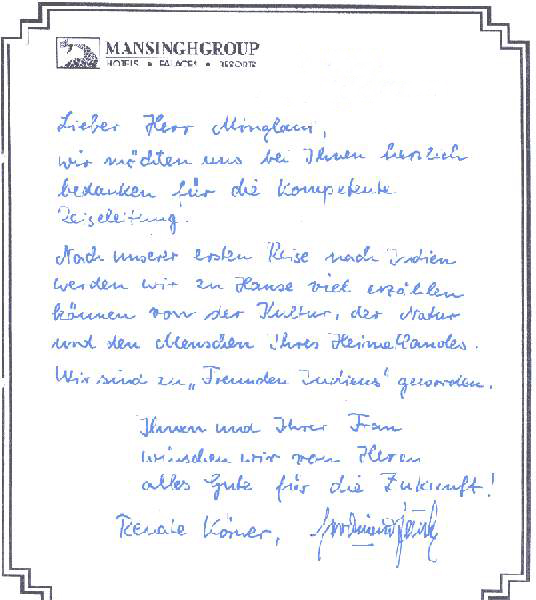 MANSINGHGROUP
HOTELS • PALACES • RESORTS
Lieber Herr
wir möchten uns bei Ihnen herzlich
bedanken für die kompetente
Reiseleitung.
Nach unserer ersten Reise nach Indien
werden wir zu Hause viel erzählen
können von der Kultur, der Natur
und den Menschen Ihres Heimatlandes.
Wir sind zu „Freunden Indiens" geworden.
Ihnen und Ihrer Frau
wünschen wir von Herzen
alles Gute für die Zukunft!
Renate